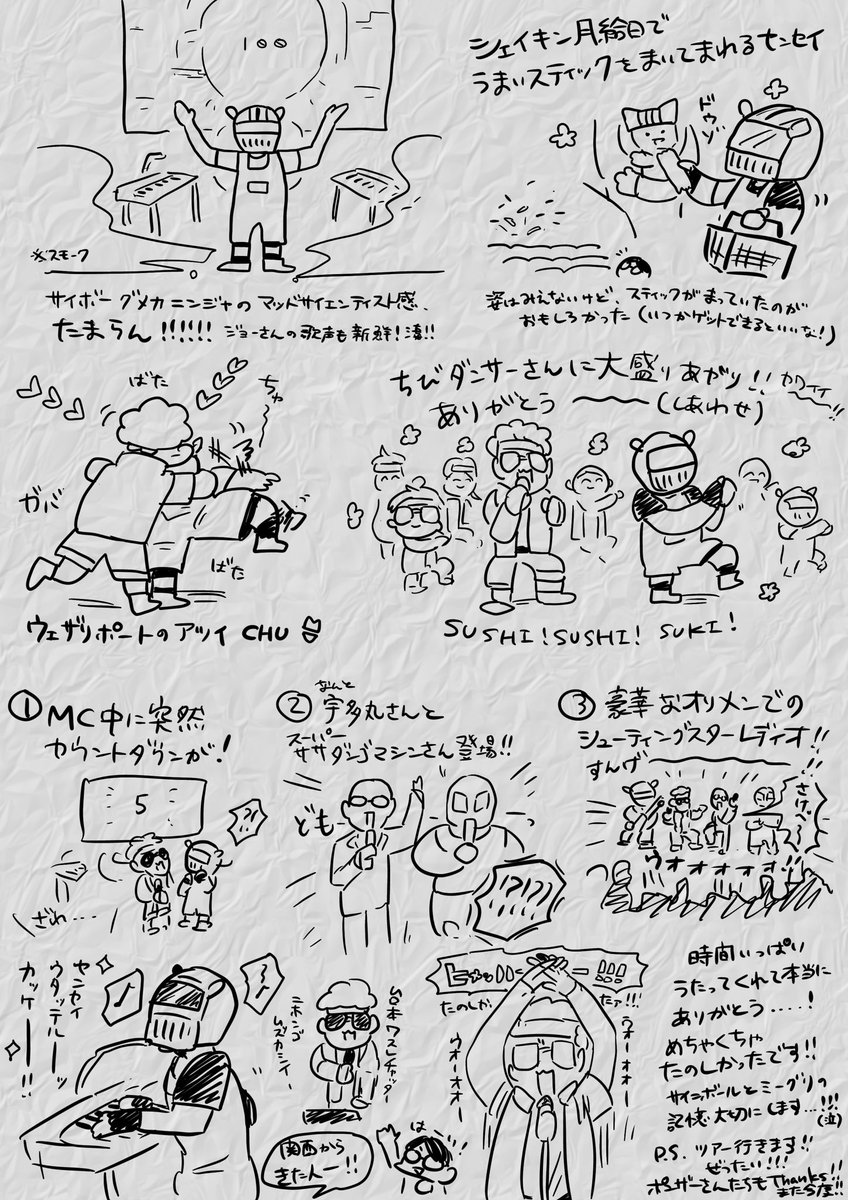 100
※スモーク
サイボーグメカニンジャのマッドサイエンティスト感、
たまらん!!!!!! ジョーさんの歌声も新鮮!凄!!
シェイキン月給日で
うまいスティックをまいてまわるセンセイ
ドウゾ
姿はみえないけど、スティックがまっていたのが
おもしろかった(いつかゲットできるといいな!)
ばた
ちゅ
ガバ
ばた
ウェザリポートのアツイ CHU
ちびダンサーさんに大盛りあがり!! カワイイ〜!!
ありがとう〜〜(しあわせ)
SUSHI! SUSHI! SUKI!
① MC中に突然
カウントダウンが!
5
?!
ざわ....
② なんと
宇多丸さんと
スーパー
ササダンゴマシンさん登場!!
どもー
!?!?!
③ 豪華なオリメンでの
シューティングスターレディオ!!
すんげーーー!!
さけべ〜
ウォォォォォ!!
センセイ
ウタッテルーッ
カッケーー!!
♪
ニホンゴ
ムズカシイー
関西から
きたんー!!
は
たのしか
たァ!!!
ウオーオオー
ウオーオオー
時間いっぱい
うたってくれて本当に
ありがとう.....!
めちゃくちゃ
たのしかったです!!
サイコボールとミーグリの
記憶大切にします...!!!(泣)
P.S. ツアー行きます!!
ぜったい!!!
ポーザーさんたちもThanks!!
また今度!!